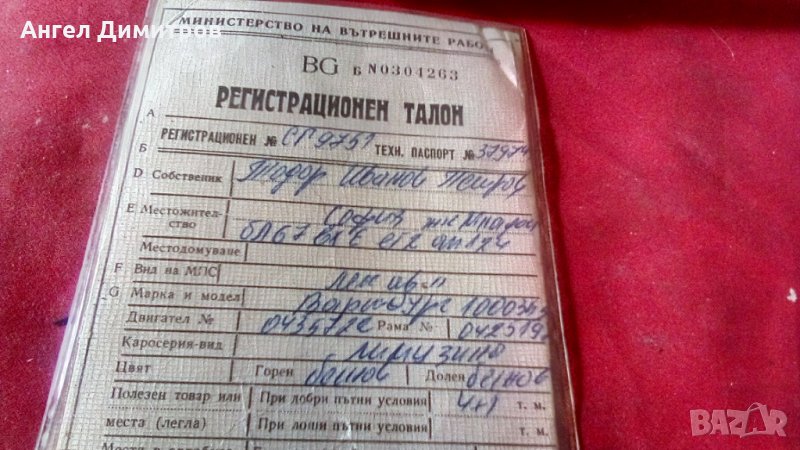 Ангел Димитров
МИНИСТЕРСТВО НА ВЪТРЕШНИТЕ РАБО
BG Б N0304263
РЕГИСТРАЦИОНЕН ТАЛОН
А
РЕГИСТРАЦИОНЕН № СГ9751 ТЕХН. ПАСПОРТ №
Б
D Собственик Тодор Иванов Петров
Е Местожител-ство София жк Младост
бл 67 вх Е ет 2 ап 124
Местодомуване
F Вид на МПС лек авт
G Марка и модел Вартбург 1000353
Двигател № Рама №
Каросерия-вид лимузина
Цвят Горен бежов Долен бежов
Полезен товар или При добри пътни условия 4+1 т. м.
места (легла) При лоши пътни условия т. м.
BAZAR